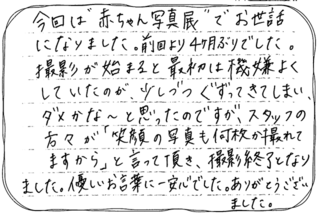 今回は"赤ちゃん写真展"でお世話
になりました。前回より4ヶ月ぶりでした。
撮影が始まると最初は機嫌よく
していたのが、少しづつぐずってきてしまい、
ダメかな〜と思ったのですが、スタッフの
方々が「笑顔の写真も何枚か撮れて
ますから」と言って頂き、撮影終了となり
ました。優しいお言葉に一安心でした。ありがとうござい
ました。